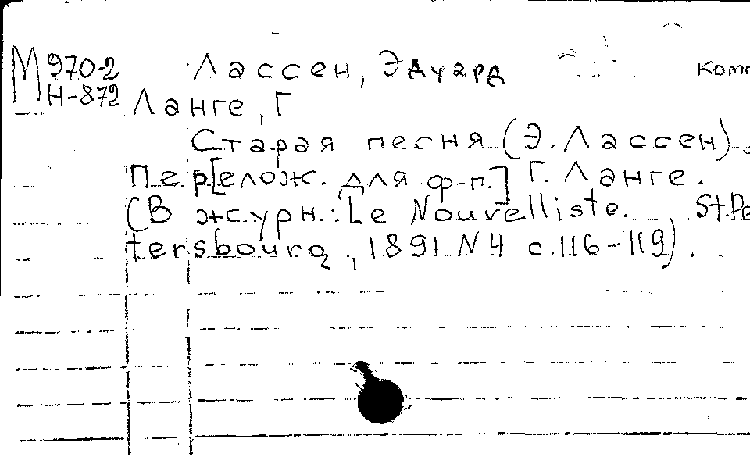 М 970-2 Лассен, Эдуард Комп
Н-872
Ланге, Г
Старая песня (Э. Лассен).
Пер[елож. для ф-п.] Г. Ланге.
(В журн.: Le Nouvelliste. St.Pe
tersbourg, 1891 N 4 с.116-119).